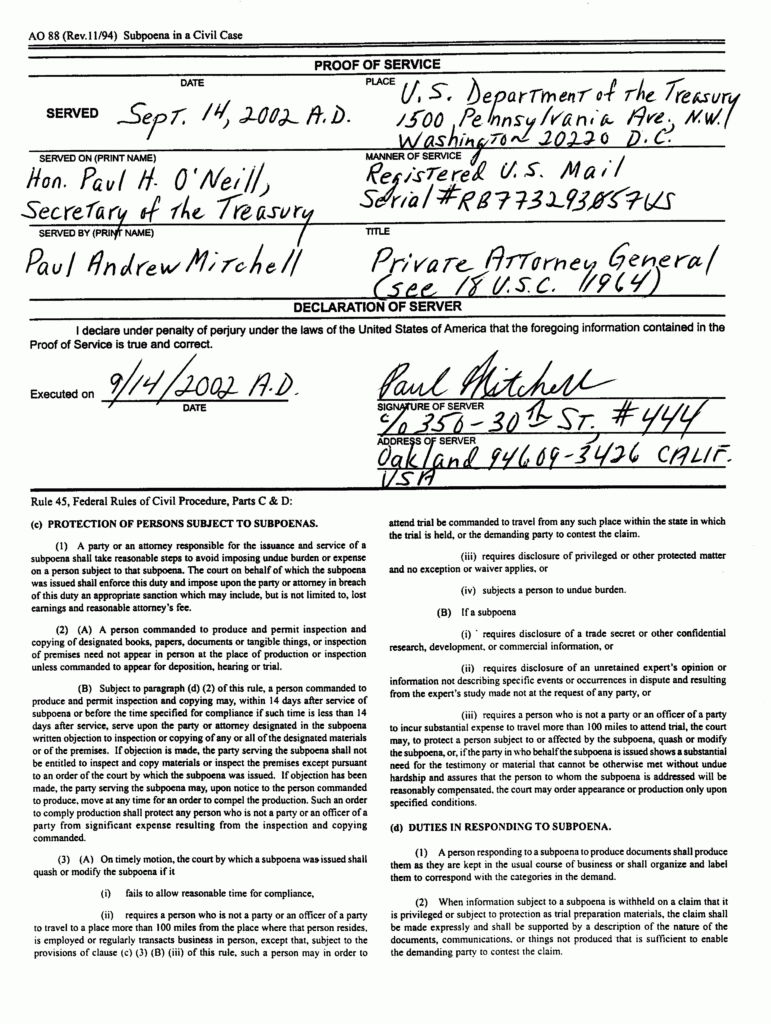 AO 88 (Rev.11/94) Subpoena in a Civil Case
PROOF OF SERVICE
DATE
PLACE
SERVED
Sept. 14, 2002 A.D.
U.S. Department of the Treasury
1500 Pennsylvania Ave., N.W.
Washington 20220 D.C.
SERVED ON (PRINT NAME)
MANNER OF SERVICE
Hon. Paul H. O'Neill,
Secretary of the Treasury
Registered U.S. Mail
Serial #RB773293057US
SERVED BY (PRINT NAME)
TITLE
Paul Andrew Mitchell
Private Attorney General
(see 18 U.S.C. 1964)
DECLARATION OF SERVER
I declare under penalty of perjury under the laws of the United States of America that the foregoing information contained in the
Proof of Service is true and correct.
Executed on
9/14/2002 A.D.
DATE
Paul Mitchell
SIGNATURE OF SERVER
c/o 350-30th St. #444
ADDRESS OF SERVER
Oakland 94609-3426 CALIF.
USA
Rule 45, Federal Rules of Civil Procedure, Parts C & D:
(c) PROTECTION OF PERSONS SUBJECT TO SUBPOENAS.
(1) A party or an attorney responsible for the issuance and service of a
subpoena shall take reasonable steps to avoid imposing undue burden or expense
on a person subject to that subpoena. The court on behalf of which the subpoena
was issued shall enforce this duty and impose upon the party or attorney in breach
of this duty an appropriate sanction which may include, but is not limited to, lost
earnings and reasonable attorney's fee.
(2) (A) A person commanded to produce and permit inspection and
copying of designated books, papers, documents or tangible things, or inspection
of premises need not appear in person at the place of production or inspection
unless commanded to appear for deposition, hearing or trial.
(B) Subject to paragraph (d) (2) of this rule, a person commanded to
produce and permit inspection and copying may, within 14 days after service of
subpoena or before the time specified for compliance if such time is less than 14
days after service, serve upon the party or attorney designated in the subpoena
written objection to inspection or copying of any or all of the designated materials
or of the premises. If objection is made, the party serving the subpoena shall not
be entitled to inspect and copy materials or inspect the premises except pursuant
to an order of the court by which the subpoena was issued. If objection has been
made, the party serving the subpoena may, upon notice to the person commanded
to produce, move at any time for an order to compel the production. Such an order
to comply production shall protect any person who is not a party or an officer of a
party from significant expense resulting from the inspection and copying
commanded.
(3) (A) On timely motion, the court by which a subpoena was issued shall
quash or modify the subpoena if it
(i) fails to allow reasonable time for compliance,
(ii) requires a person who is not a party or an officer of a party
to travel to a place more than 100 miles from the place where that person resides,
is employed or regularly transacts business in person, except that, subject to the
provisions of clause (c) (3) (B) (iii) of this rule, such a person may in order to
attend trial be commanded to travel from any such place within the state in which
the trial is held, or the demanding party to contest the claim.
(iii) requires disclosure of privileged or other protected matter
and no exception or waiver applies, or
(iv) subjects a person to undue burden.
(B) If a subpoena
(i) requires disclosure of a trade secret or other confidential
research, development, or commercial information, or
(ii) requires disclosure of an unretained expert's opinion or
information not describing specific events or occurrences in dispute and resulting
from the expert's study made not at the request of any party, or
(iii) requires a person who is not a party or an officer of a party
to incur substantial expense to travel more than 100 miles to attend trial, the court
may, to protect a person subject to or affected by the subpoena, quash or modify
the subpoena, or, if the party in who behalf the subpoena is issued shows a substantial
need for the testimony or material that cannot be otherwise met without undue
hardship and assures that the person to whom the subpoena is addressed will be
reasonably compensated, the court may order appearance or production only upon
specified conditions.
(d) DUTIES IN RESPONDING TO SUBPOENA.
(1) A person responding to a subpoena to produce documents shall produce
them as they are kept in the usual course of business or shall organize and label
them to correspond with the categories in the demand.
(2) When information subject to a subpoena is withheld on a claim that it
is privileged or subject to protection as trial preparation materials, the claim shall
be made expressly and shall be supported by a description of the nature of the
documents, communications, or things not produced that is sufficient to enable
the demanding party to contest the claim.